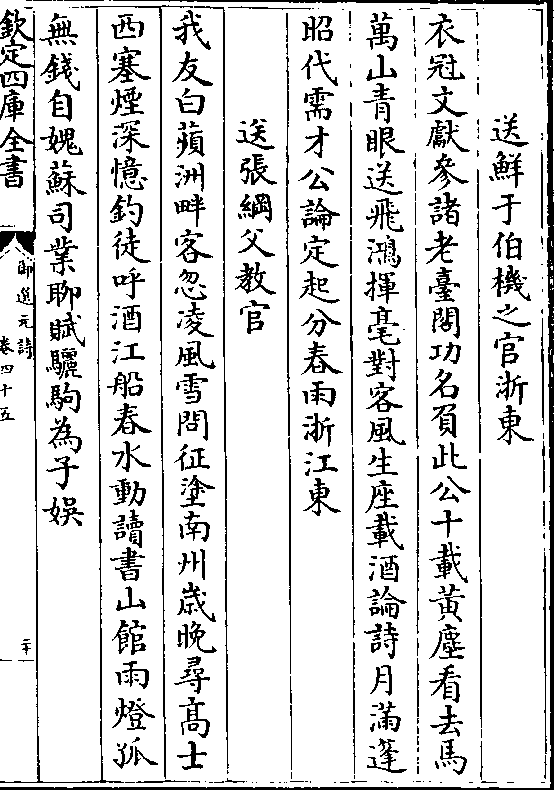 送鮮于伯機之官浙東
衣冠文獻參諸老臺閣功名負此公十載黃塵看去馬
萬山青眼送飛鴻揮毫對客風生座載酒論詩月滿篷
昭代需才公論定起分春雨浙江東
送張綱父教官
我友白蘋洲畔客忽凌風雪問征塗南州歲晚尋髙士
西塞煙深憶釣徒呼酒江船春水動讀書山館雨燈孤
無錢自媿蘇司業聊賦驪駒為子娱
欽定四庫全書
御選元詩
卷四十五
二十